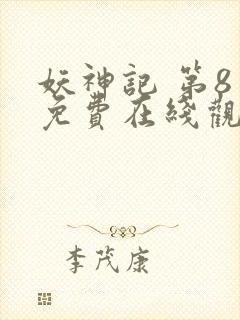 妖神記 第8
免費在綫觀
李茂康